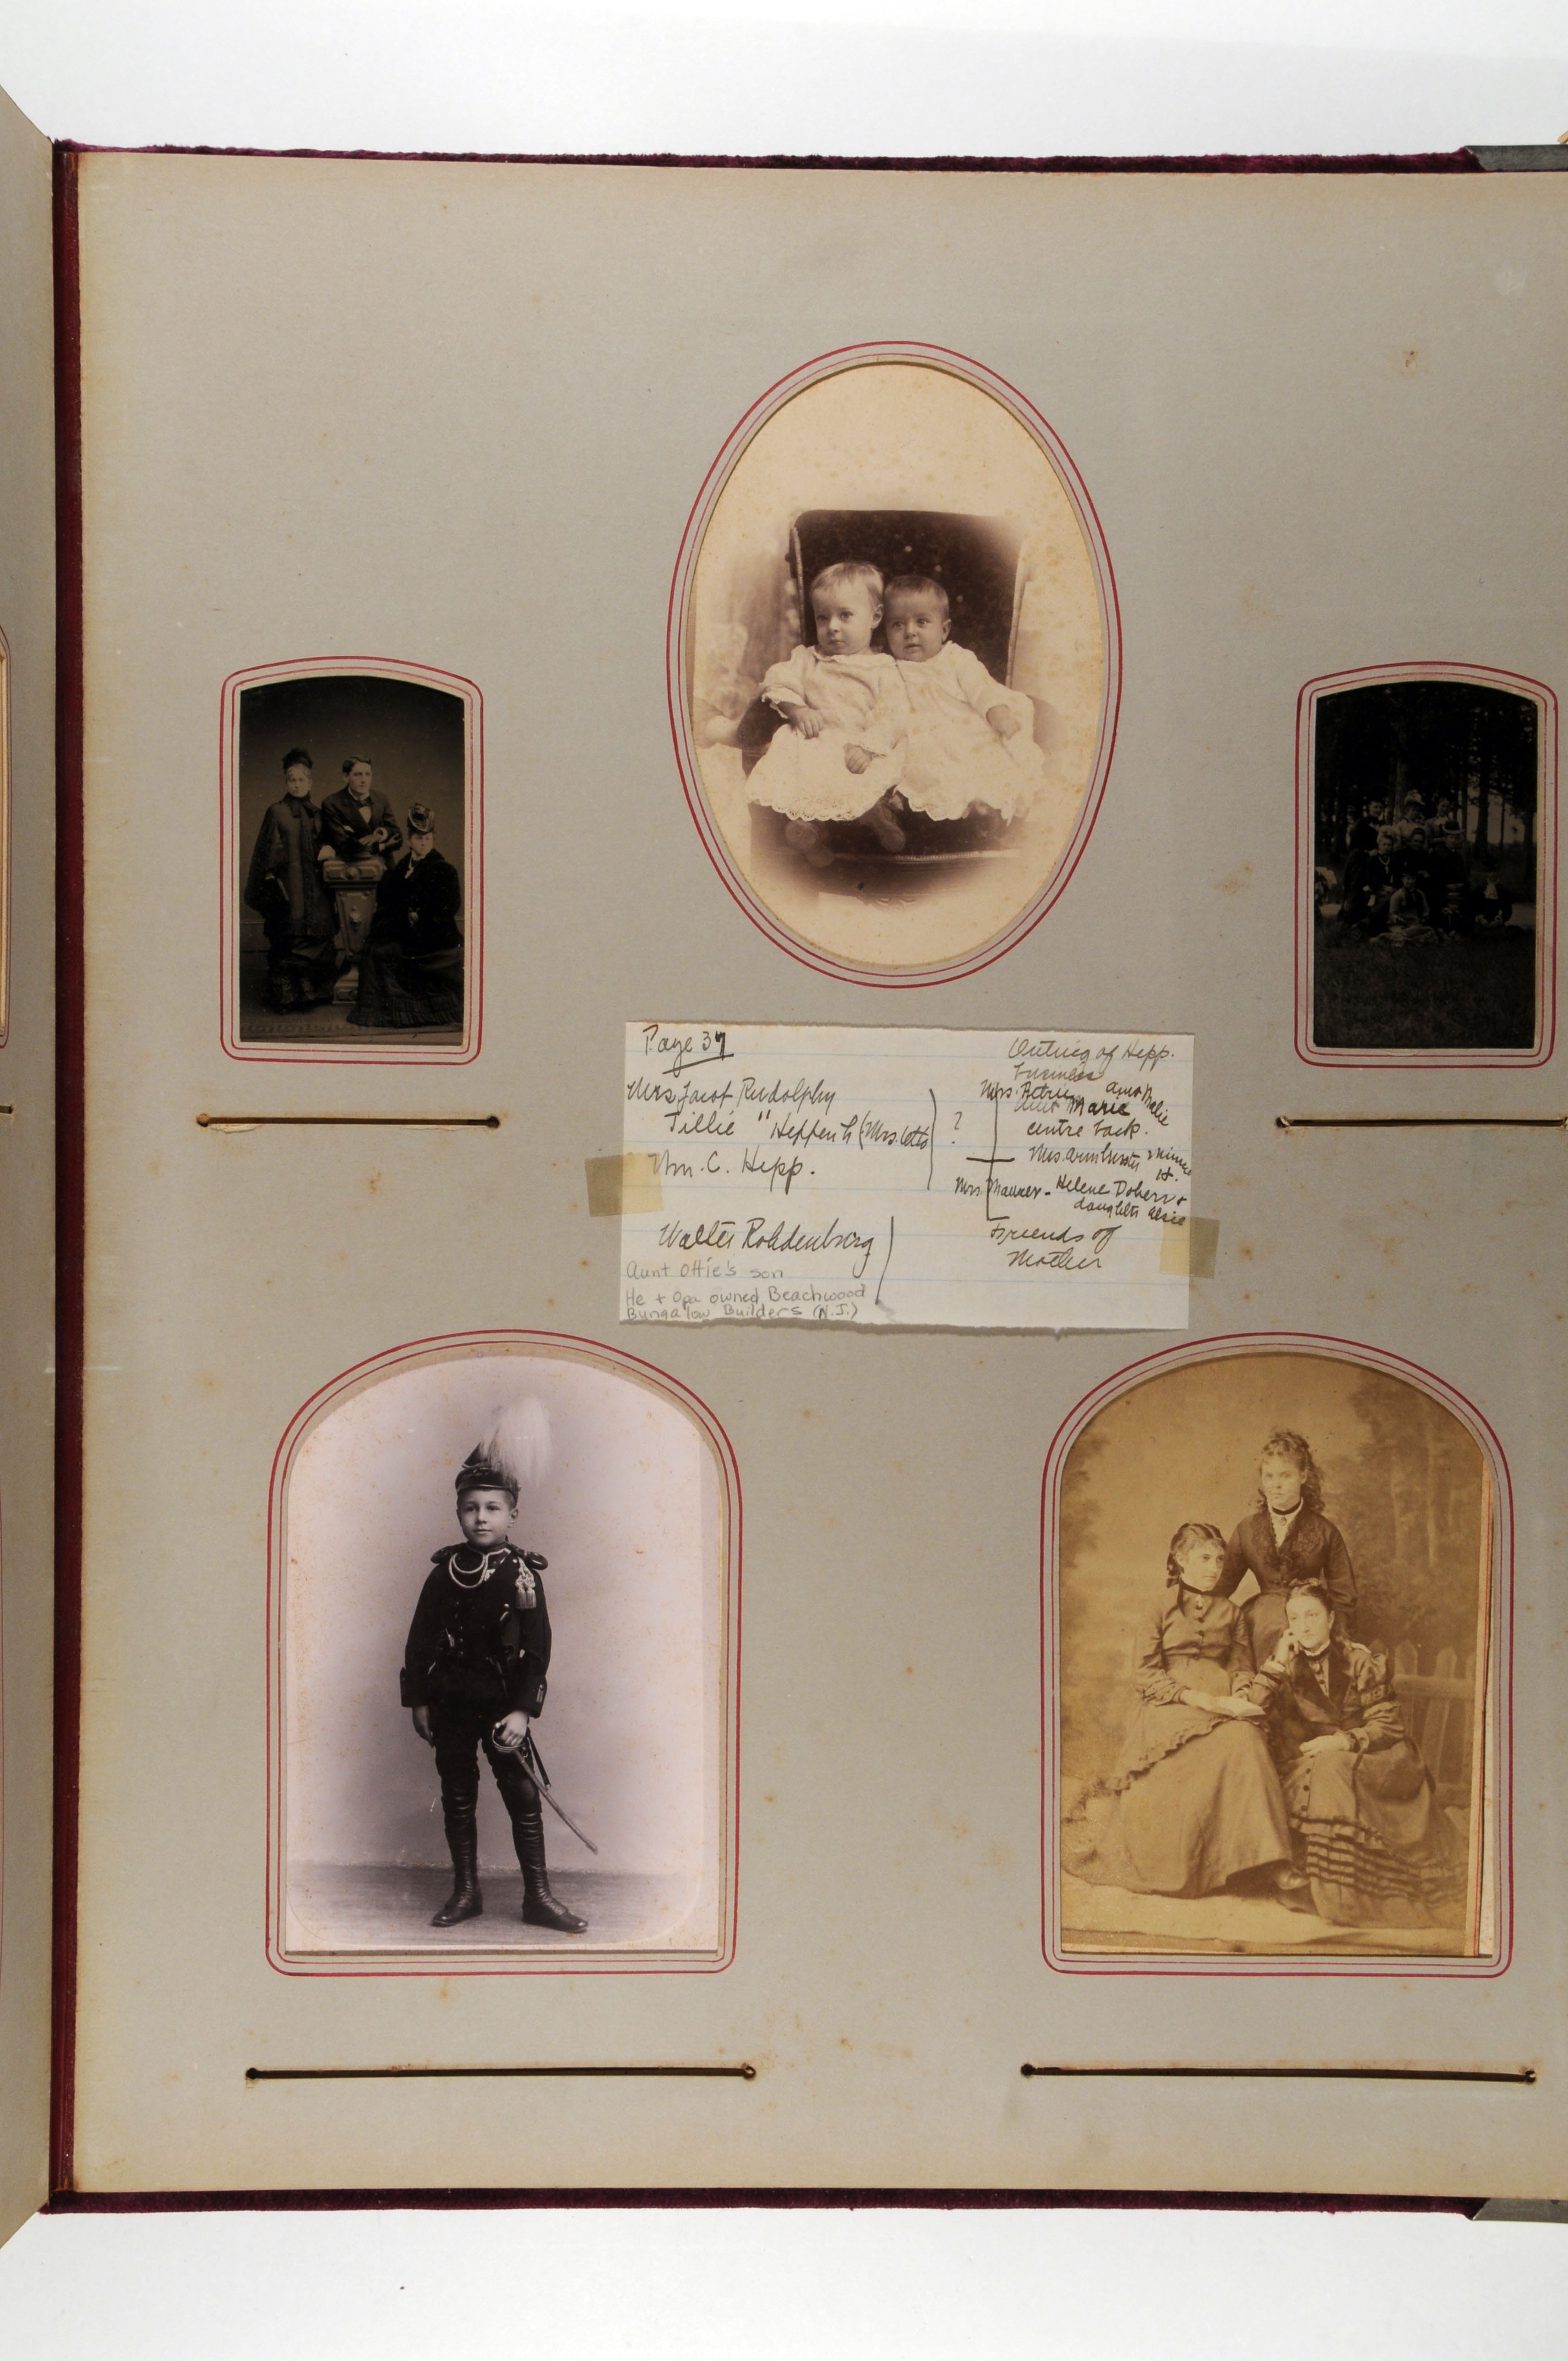 Page 37
Mrs Jacob Rudolphy
Tillie " Heppenh (Mrs. Otto
Wm. C. Hepp.
?
Walter Rohdenburg
Aunt Ottie's son
He + Opa owned Beachwood
Bungalow Builders (N.J.)
Outing of Hepp.
business
Mrs. Petrie Aunt Malie
Aunt Marie
centre back.
Mrs. Minnie
H.
Mrs. Maurer - Helene Dobers +
daughter Elsie
Friends of
Mother